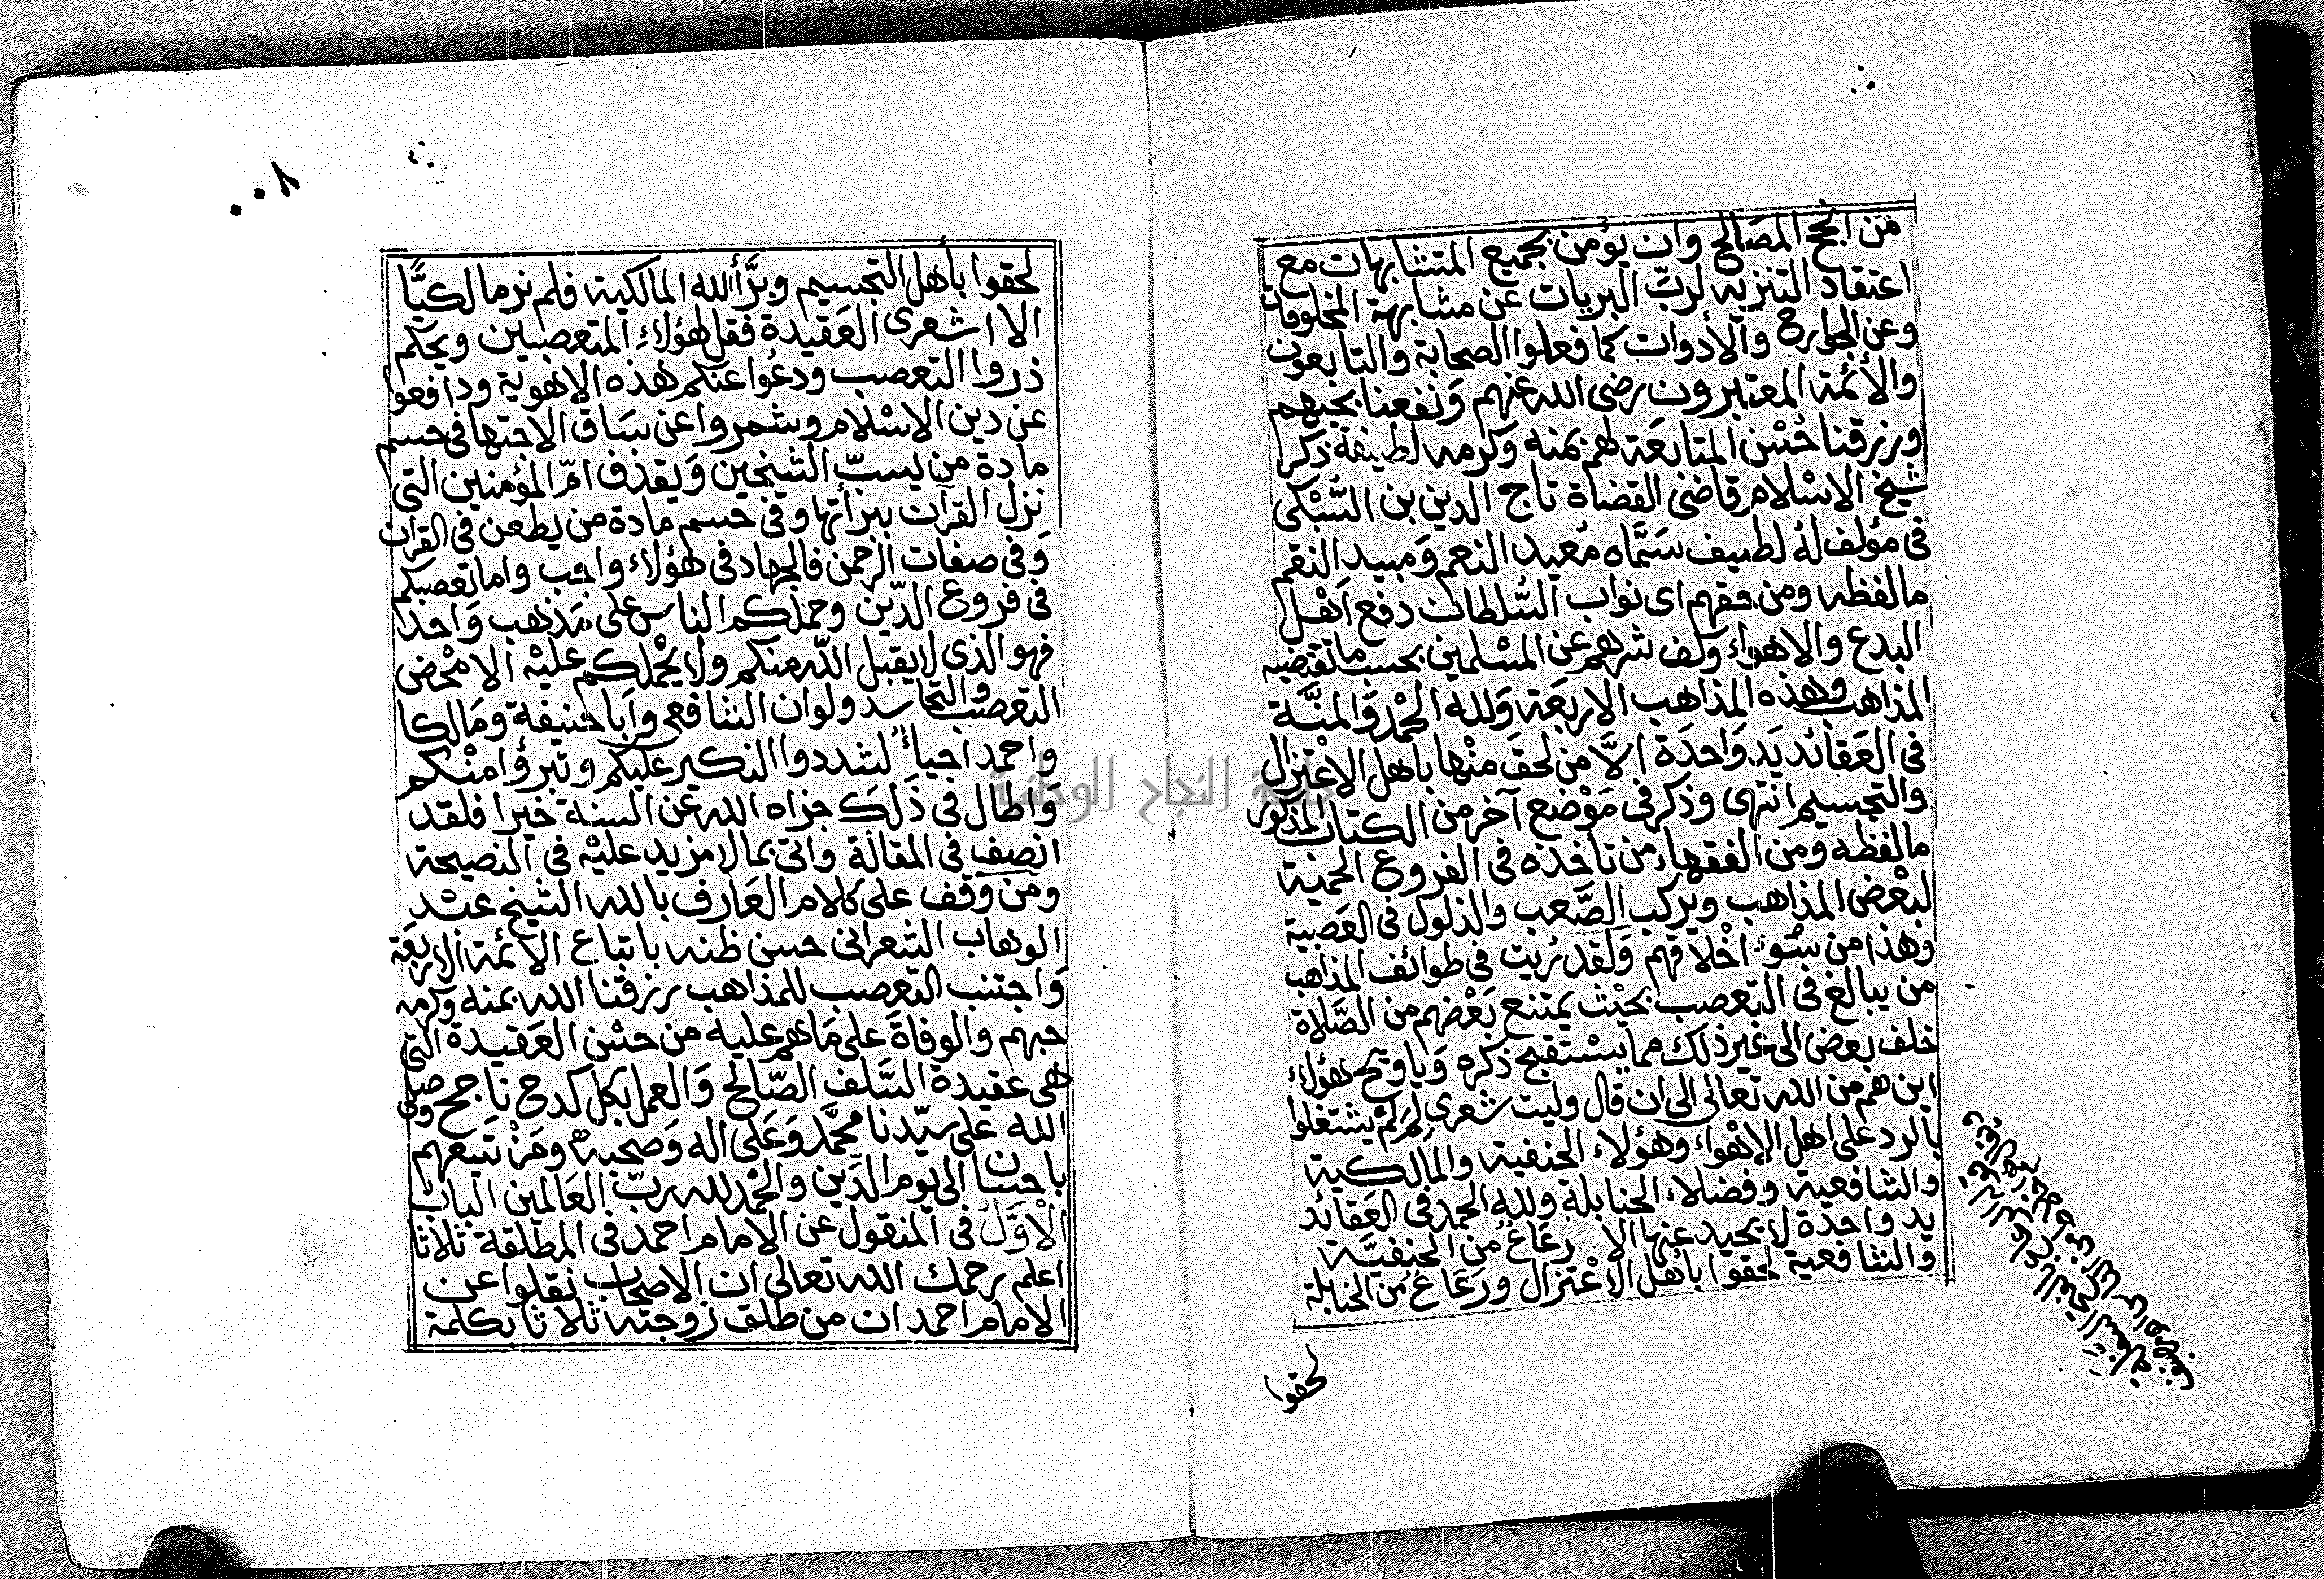 من انجح المصالح وان يؤمن بجميع المتشابهات مع
اعتقاد التنزيه لربّ البريات عن مشابهة المخلوقات
وعن الجوارح والأدوات كما فعلوا الصحابة والتابعون
والأئمة المعتبرون رضى الله عنهم وَنفعنا بحبهم
ورزقنا حُسْن المتابعَة لهم بمنه وكرمه لطيفة ذكرا
شيخ الاسْلام قاضى القضاة تاج الدين بن السُّبْكى
فى مؤلف لهُ لطيف سَمَّاه مُعيد النعم وَمبيد النقم
مالفظه ومن حقهم اى نواب السُّلطان دفع اَهْل
البدع والاهواء وكف شرهم عن المسْلمين بحسب ما تقتضيه
المذاهب وهذه المذاهب الاربعَة وَلله الحمْد وَالمنَّة
فى العَقائد يَد وَاحدَة الاَّ من لحقَ منْها بأهل الاعْتزال
والتجسيم انتهى وذكر فى مَوْضع آخر من الكتاب المذكور
مالفظه ومن الفقهاء من تأخذه فى الفروع الحمية
لبعْض المذاهب ويركب الصَّعب والذلول فى العَصبية
وهذا من سُوء اخْلاقهم وَلقد رُيت فى طوائف المذاهب
من يبالغ فى التعصب بحيْث يمتنع بَعْضهم من الصَّلاة
خلف بعض الى غير ذلك مما يسْتقبح ذكره وَيا ويح هؤلاء
اين هم من الله تعالى الى ان قال وليت شعرى لم لم يشتغلوا
بالرد على اهل الاهْواء وهؤلاء الحنفية والمالكية
والشافعية وفضلاء الحنابلة ولله الحمد فى العَقائد
يد واحدة لا يحيد عنها الا رعَاعُ من الحنفيَّة
والشافعية لحقوا بأهل الاعْتزال ورعَاعُ من الحنابلة
لحقوا
٨٠٠
لحقوا بأهل التجسيم وبرَّأ الله المالكية فلم نر مالكيًّا
الا اشعرى العَقيدة فقل لهؤلاءِ المتعصبين ويحكم
ذروا التعصب ودعُوا عنكم هذه الاهوية ودافعوا
عن دين الاسْلام وشمروا عن سَاق الاجتها فى حسم
مادة من يسبّ الشيخين وَيقذف امّ المؤمنين التى
نزل القرآن ببرأتها وفى حسم مادة من يطعن فى القرآن
وَفى صفات الرحمن فالجهاد فى هؤلاء واجب واما تعصبكم
فى فروع الدّين وحملكم الناس على مَذهب وَاحد
فهو الذى لا يقبل اللّه منكم ولا يحْملكم عليْه الا محْض
التعصب والتحاسد ولو ان الشافعى وابا حنيفة ومَالكا
واحمد احياءُ لشددوا النكير عليكم وتبرؤا منْكم
وَاطال فى ذَلكَ جزاه الله عن السنة خيرا فلقد
انصف فى المقالة واتى بما لا مزيد عليْه فى النصيحة
ومن وقف على كلام العَارف بالله الشيخ عبْد
الوهاب الشعرانى حسن ظنه باتباع الائمة الاربعَة
وَاجتنب التعصب للمذاهب رزقنا الله بمنه وكرمه
حبهم والوفاةَ على مَا هم عليه من حسْن العَقيدة التى
هى عقيدة السَّلف الصّالح وَالعمل بكل كدح ناجح وصلى
الله على سيّدنا محمَّد وَعَلى اله وَصحبه ومَنْ تَبعهم
باحسان الى يوم الدّين والحمْد لله ربّ العَالمين البابُ
الاوَّلُ فى المنقول عن الامام احمد فى المطلقة ثلاثا
اعلم رحمك الله تعالى ان الاصحاب نقلوا عن
الامام احمد ان من طلق زوجته ثلاثا بكلمة
جامعة النجاح الوطنية